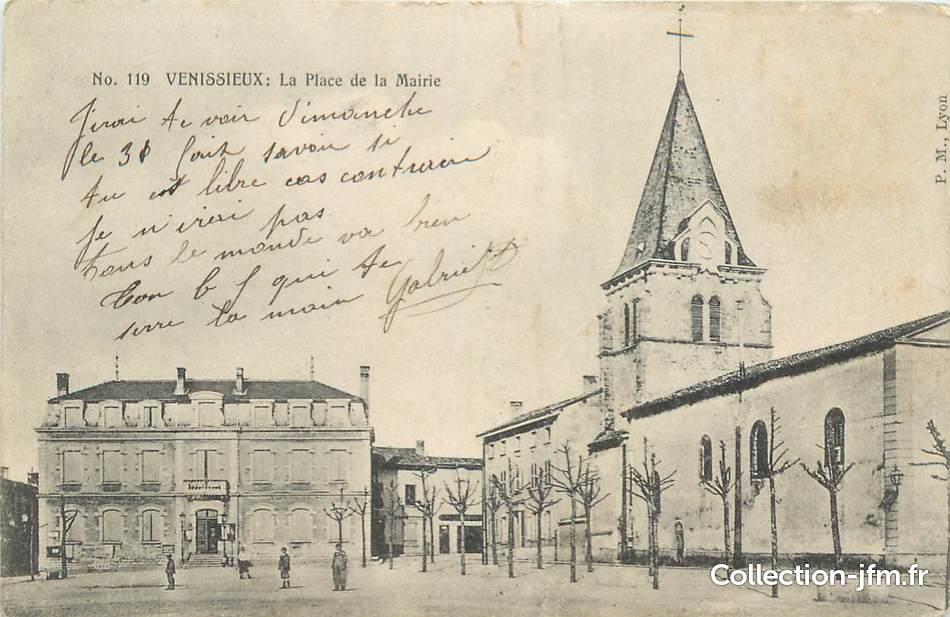 No. 119 VENISSIEUX: La Place de la Mairie
Jirai te voir dimanche
le 31 fait savoir si
tu est libre cas contraire
je n'irai pas
tous le monde va bien
Ton b f qui te
serre la main Gabriel
P. M., Lyon
Collection-jfm.fr